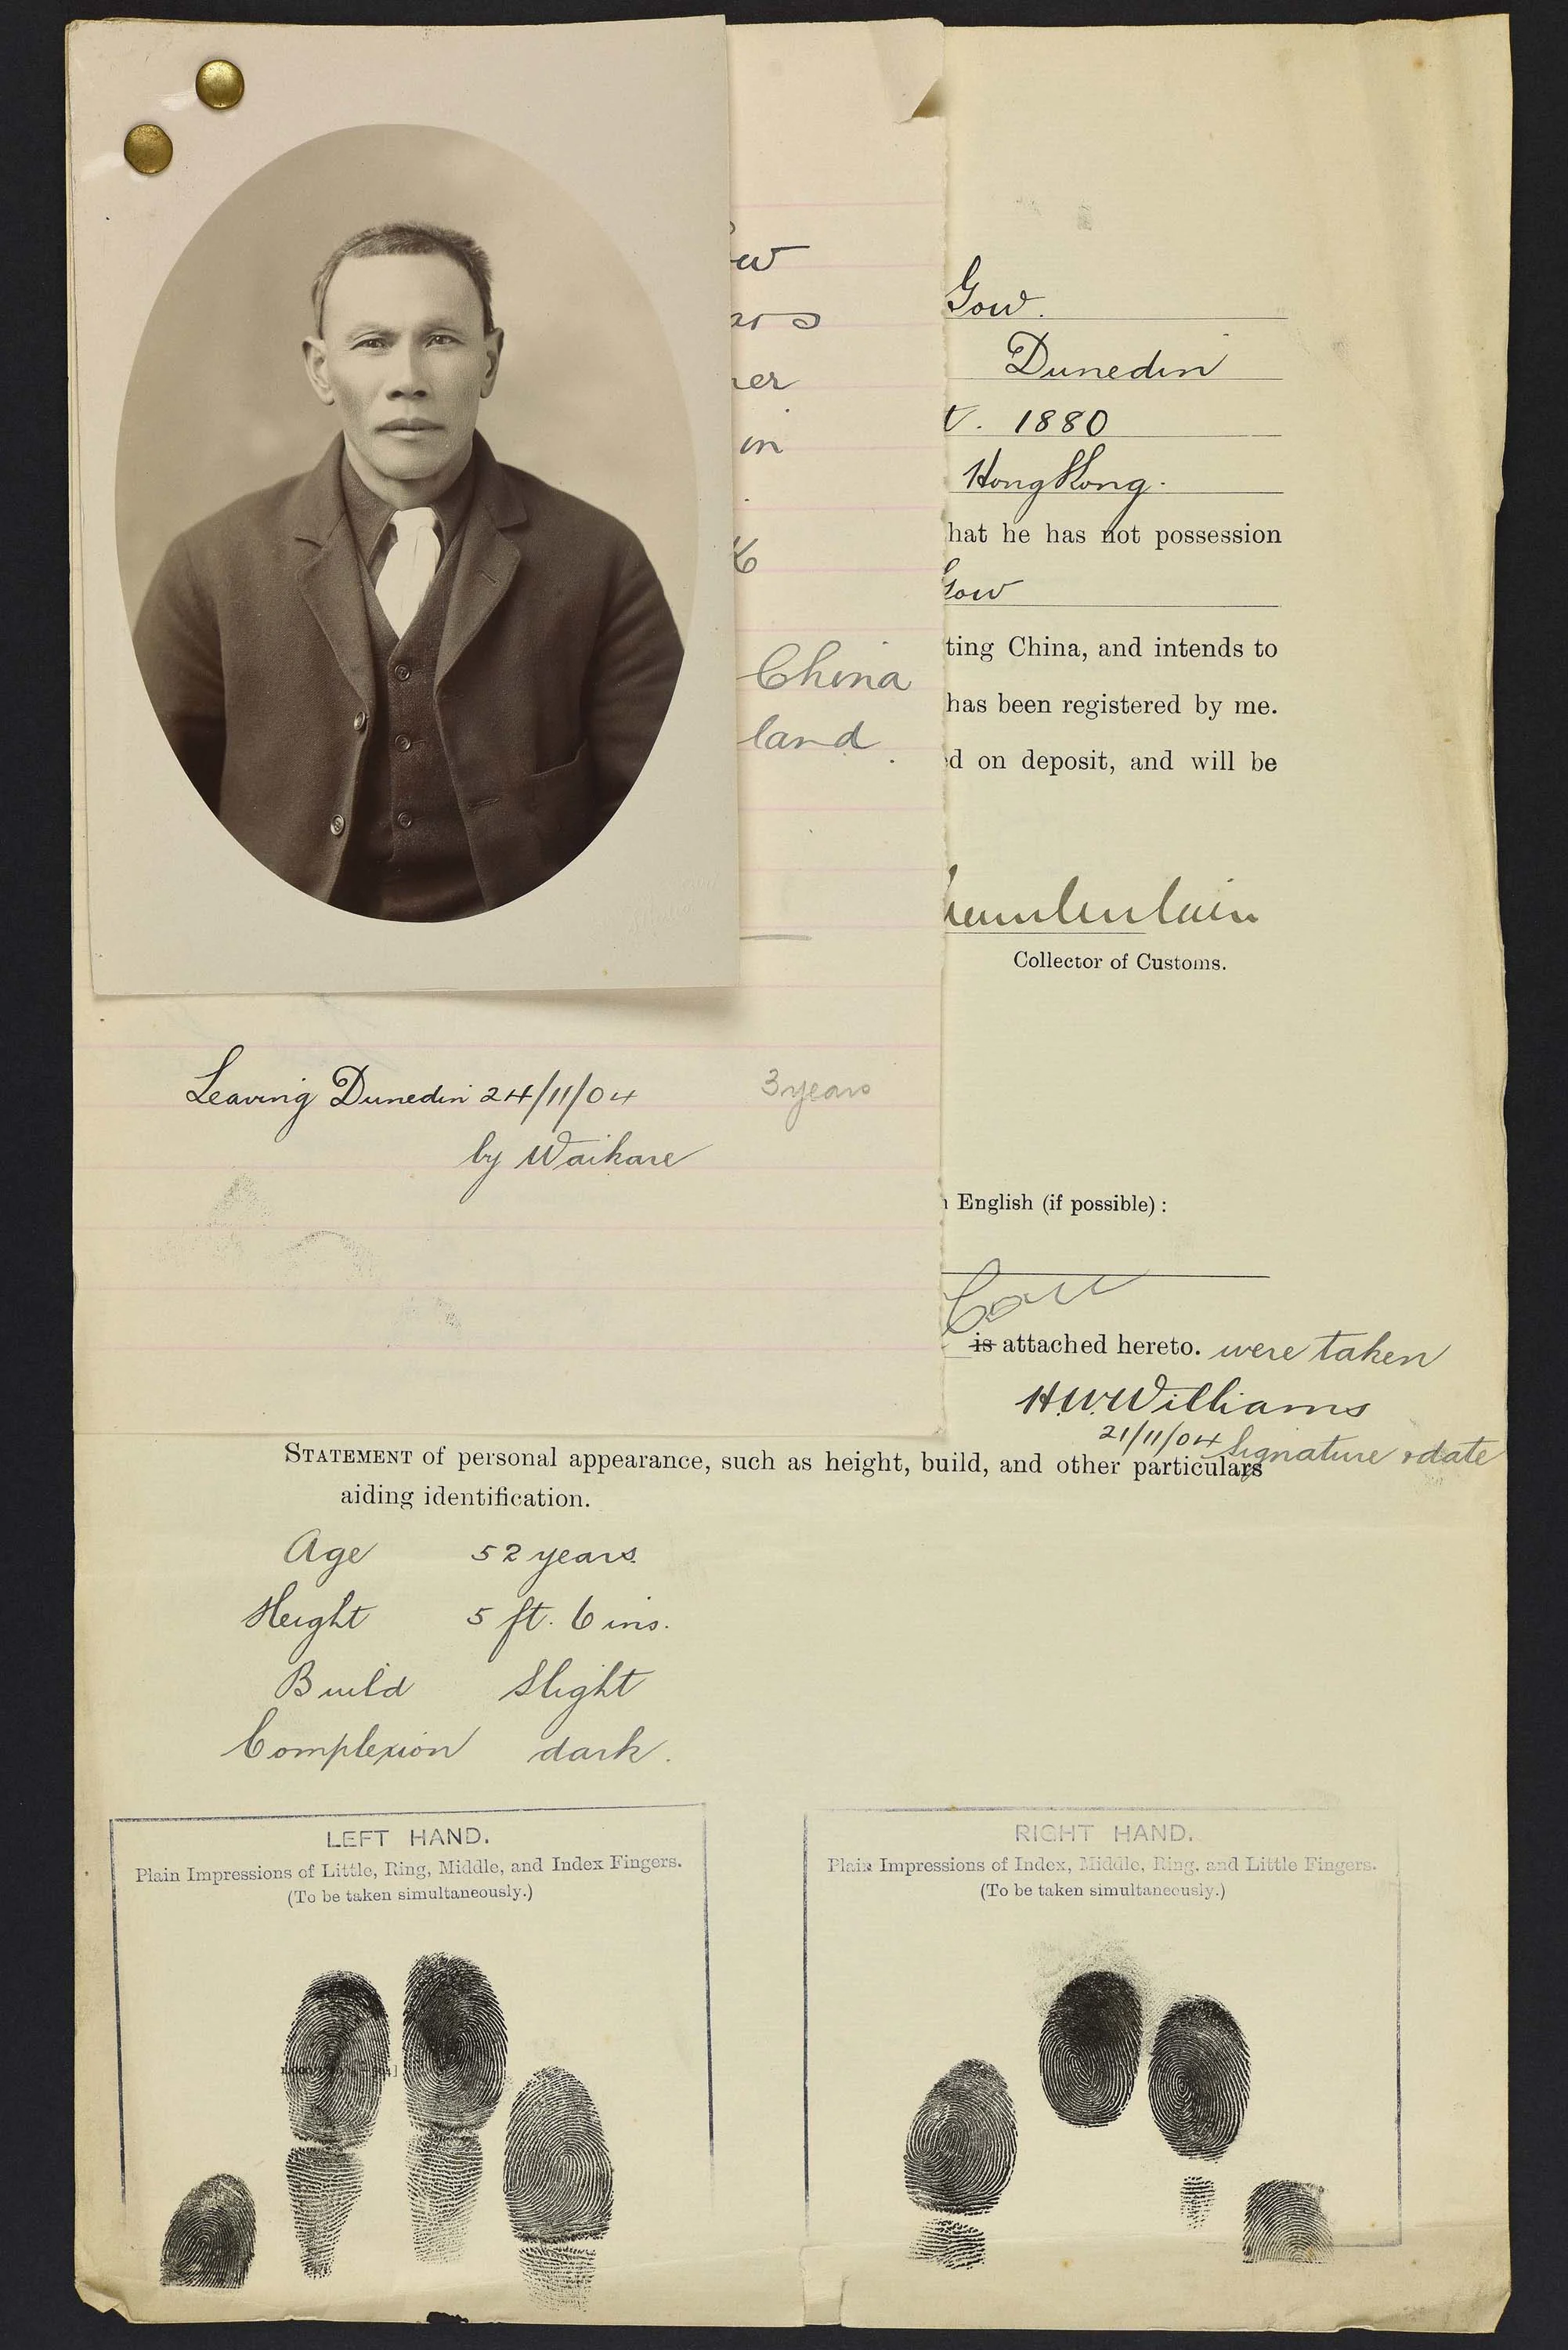 Gow.
Dunedin
1880
HongKong.
hat he has not possession
Gow
ting China, and intends to
has been registered by me.
d on deposit, and will be
Collector of Customs.
ow
ars
ner
in
China
land.
Leaving Dunedin 24/11/04
3 years
by Waikare
English (if possible) :
is attached hereto. were taken
H.W. Williams
21/11/04 Signature & date
STATEMENT of personal appearance, such as height, build, and other particulars
aiding identification.
Age 52 years.
Height 5 ft. 6 ins.
Build Slight
Complexion dark.
LEFT HAND.
Plain Impressions of Little, Ring, Middle, and Index Fingers.
(To be taken simultaneously.)
RIGHT HAND.
Plain Impressions of Index, Middle, Ring, and Little Fingers.
(To be taken simultaneously.)